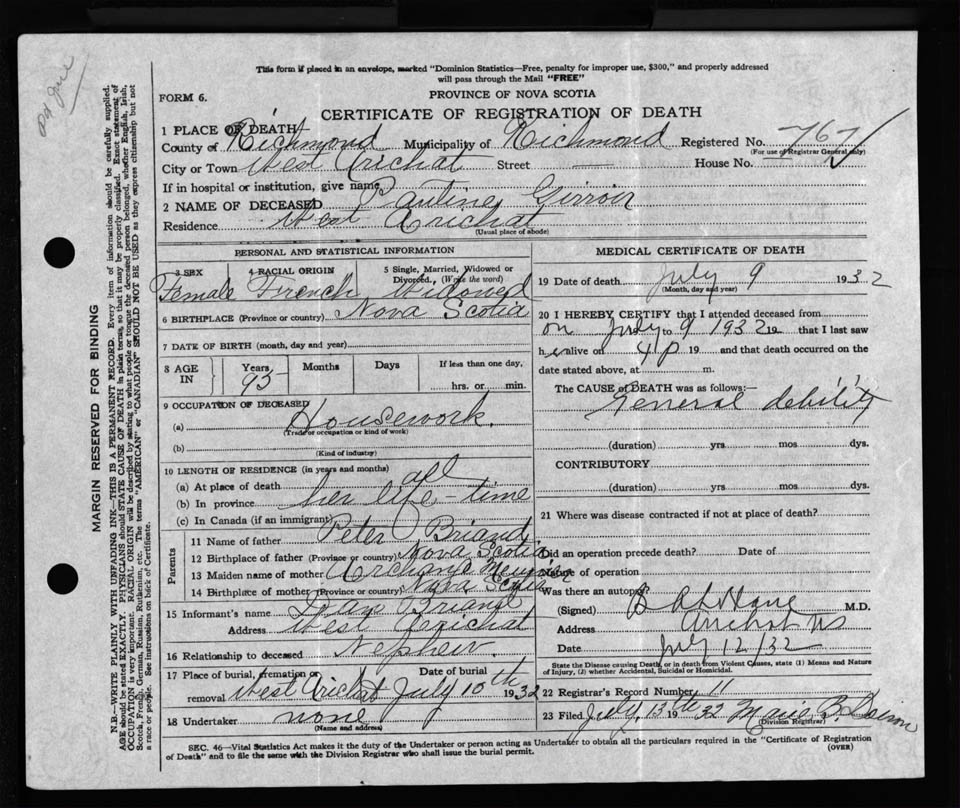 This form if placed in an envelope, marked "Dominion Statistics—Free, penalty for improper use, $300," and properly addressed
will pass through the Mail "FREE"
FORM 6.
PROVINCE OF NOVA SCOTIA
CERTIFICATE OF REGISTRATION OF DEATH
1 PLACE OF DEATH
County of Richmond Municipality of Richmond Registered No. 767
(For use of Registrar General only)
City or Town West Arichat Street House No.
If in hospital or institution, give name
2 NAME OF DECEASED Pauline Girroir
Residence West Arichat
(Usual place of abode)
PERSONAL AND STATISTICAL INFORMATION
3 SEX 4 RACIAL ORIGIN 5 Single, Married, Widowed or Divorced., (Write the word)
Female French Widowed
6 BIRTHPLACE (Province or country) Nova Scotia
7 DATE OF BIRTH (month, day and year)
8 AGE IN Years Months Days If less than one day,
95 hrs. or min.
9 OCCUPATION OF DECEASED
(a) Housework.
(Trade or occupation or kind of work)
(b)
(Kind of industry)
10 LENGTH OF RESIDENCE (in years and months)
(a) At place of death all
(b) In province her life-time
(c) In Canada (if an immigrant)
Parents
11 Name of father Peter Briand
12 Birthplace of father (Province or country) Nova Scotia
13 Maiden name of mother
14 Birthplace of mother (Province or country) Nova Scotia
15 Informant's name Briand
Address West Arichat
16 Relationship to deceased Nephew.
17 Place of burial, cremation or removal West Arichat Date of burial July 10th 1932
18 Undertaker none
(Name and address)
MEDICAL CERTIFICATE OF DEATH
19 Date of death July 9 1932
(Month, day and year)
20 I HEREBY CERTIFY that I attended deceased from
on July to 9 1932 19 that I last saw
her alive on 4 p 19 and that death occurred on the
date stated above, at m.
The CAUSE OF DEATH was as follows:
General debility
(duration) yrs mos dys.
CONTRIBUTORY
(duration) yrs mos dys.
21 Where was disease contracted if not at place of death?
Did an operation precede death? Date of
Nature of operation
Was there an autopsy?
(Signed) M.D.
Address Arichat NS
Date July 12/32
State the Disease causing Death, or in death from Violent Causes, state (1) Means and Nature
of Injury, (2) whether Accidental, Suicidal or Homicidal.
22 Registrar's Record Number 11
23 Filed July, 13th 1932
(Division Registrar)
SEC. 46—Vital Statistics Act makes it the duty of the Undertaker or person acting as Undertaker to obtain all the particulars required in the "Certificate of Registration
of Death" and to file the same with the Division Registrar who shall issue the burial permit.
(OVER)
MARGIN RESERVED FOR BINDING
N.B.—WRITE PLAINLY WITH UNFADING INK—THIS IS A PERMANENT RECORD. Every item of information should be carefully supplied.
AGE should be stated EXACTLY. PHYSICIANS should STATE CAUSE OF DEATH in plain terms, so that it may be properly classified. Exact statement of
OCCUPATION is very important. RACIAL ORIGIN will be described by stating to what people or tongue the deceased person belonged, whether English, Irish,
Scotch, French, German, Russian, Ruthenian, etc. The terms "AMERICAN" or "CANADIAN" SHOULD NOT BE USED as they express citizenship but not
a race or people. See instructions on back of Certificate.